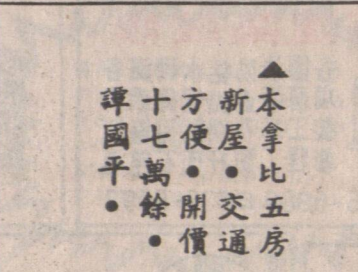 ▲本拿比五房
新屋•交通
方便•開價
十七萬餘•
譚國平•